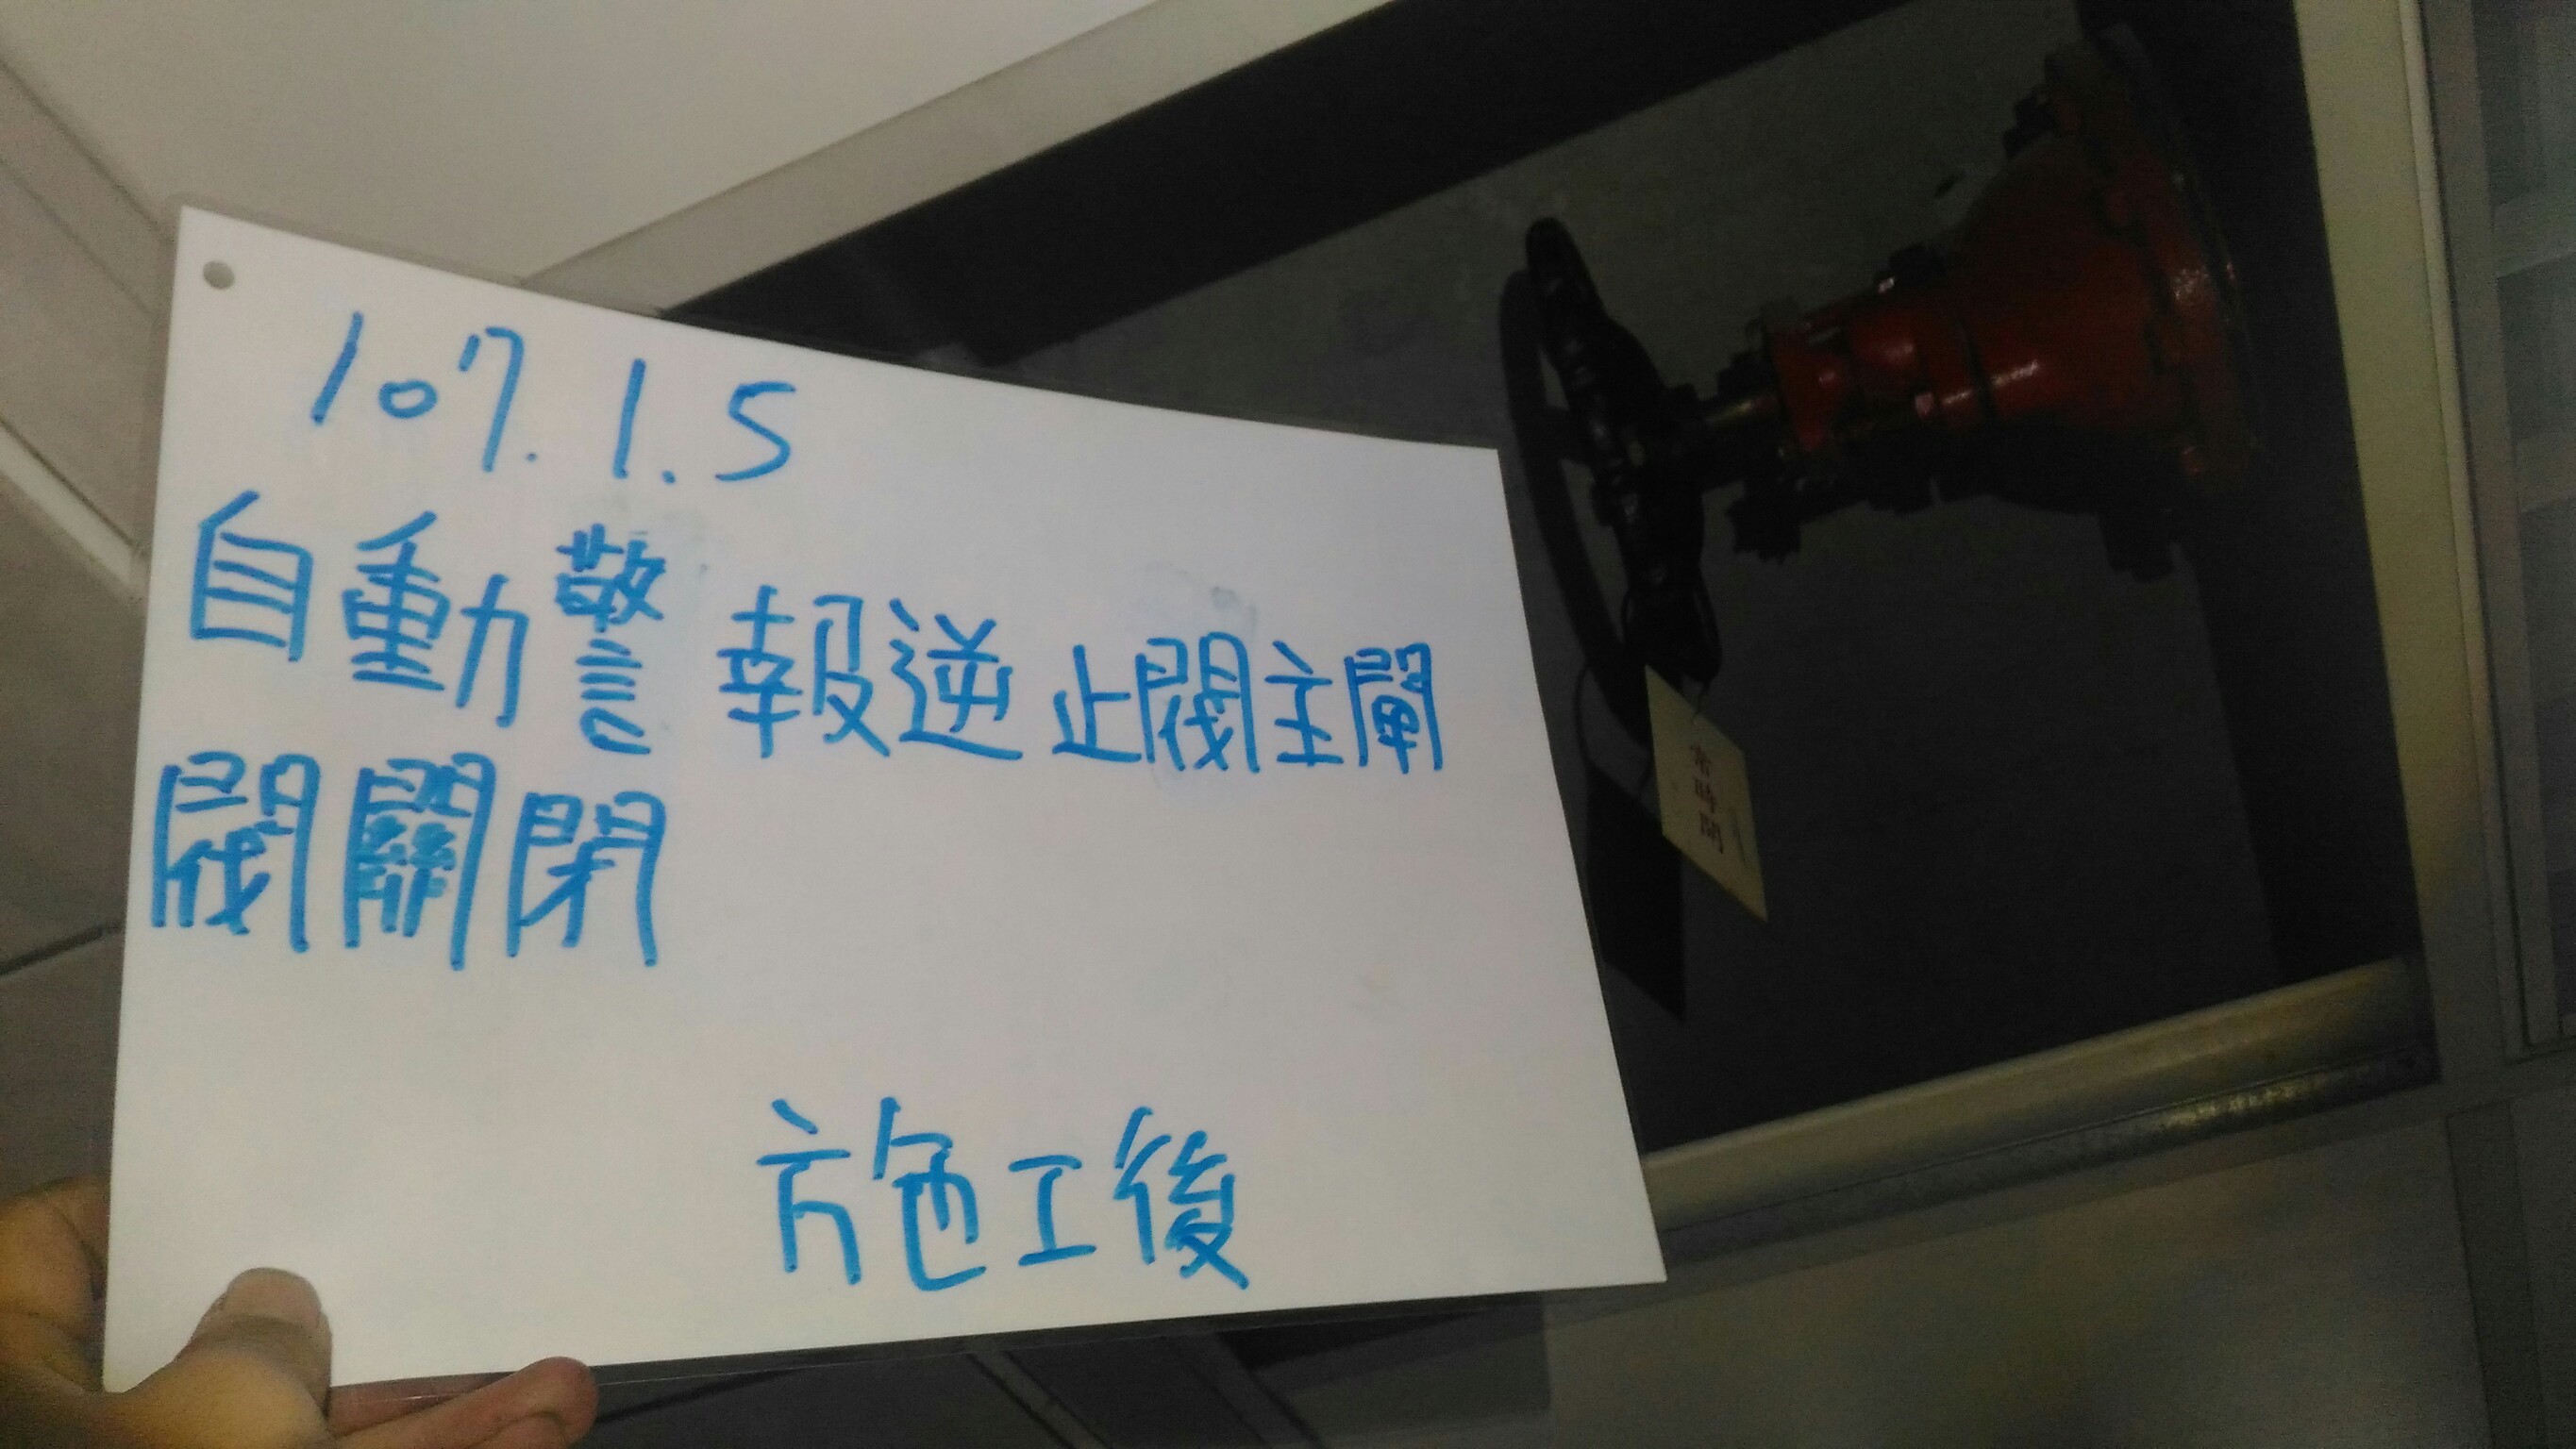 107.1.5
自動警報逆止閥主閘
閥關閉
施工後
常時開